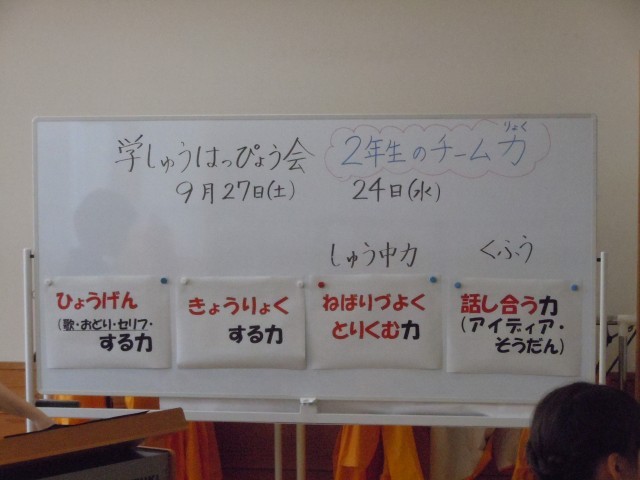 学しゅうはっぴょう会 2年生のチーム力
りょく
9月27日(土) 24日(水)
しゅう中力 くふう
ひょうげん
(歌・おどり・セリフ・
する力
きょうりょく
する力
ねばりづよく
とりくむ力
話し合う力
(アイディア・
そうだん)